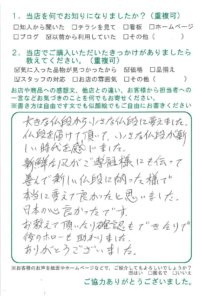 1. 当店を何でお知りになりましたか？（重複可）
□知人から聞いた □チラシを見て □看板 □ホームページ
□ブログ ☑以前から利用していた □その他（　　）
2. 当店でご購入いただいたきっかけがありましたら
教えてください。（重複可）
☑気に入った品物が見つかったから □価格 □品揃え
☑スタッフの対応 □お店の雰囲気 □その他（　　）
お店や商品への感想、他店との違い、お客様から担当者への
一言などお気づきのことを何でもお寄せください。
※書き方は自由ですますも似顔絵でもご自由にお書きください
大きな仏壇から小さな仏壇に替えました。
仏壇を掃けて頂いて、小さな仏壇が新
しい時代を感じました。
新鮮な風がご
喜んで新しい仏壇に納った様で
本当に替えて良かったと思いました。
日本の心
お教えて頂いたり確認もできたりで
後のフォローも助かりました。
ありがとうございました。
※お客様のお声を紙面やホームページなどで、ご紹介してもよろしいでしょうか？
ご協力ありがとうございました。